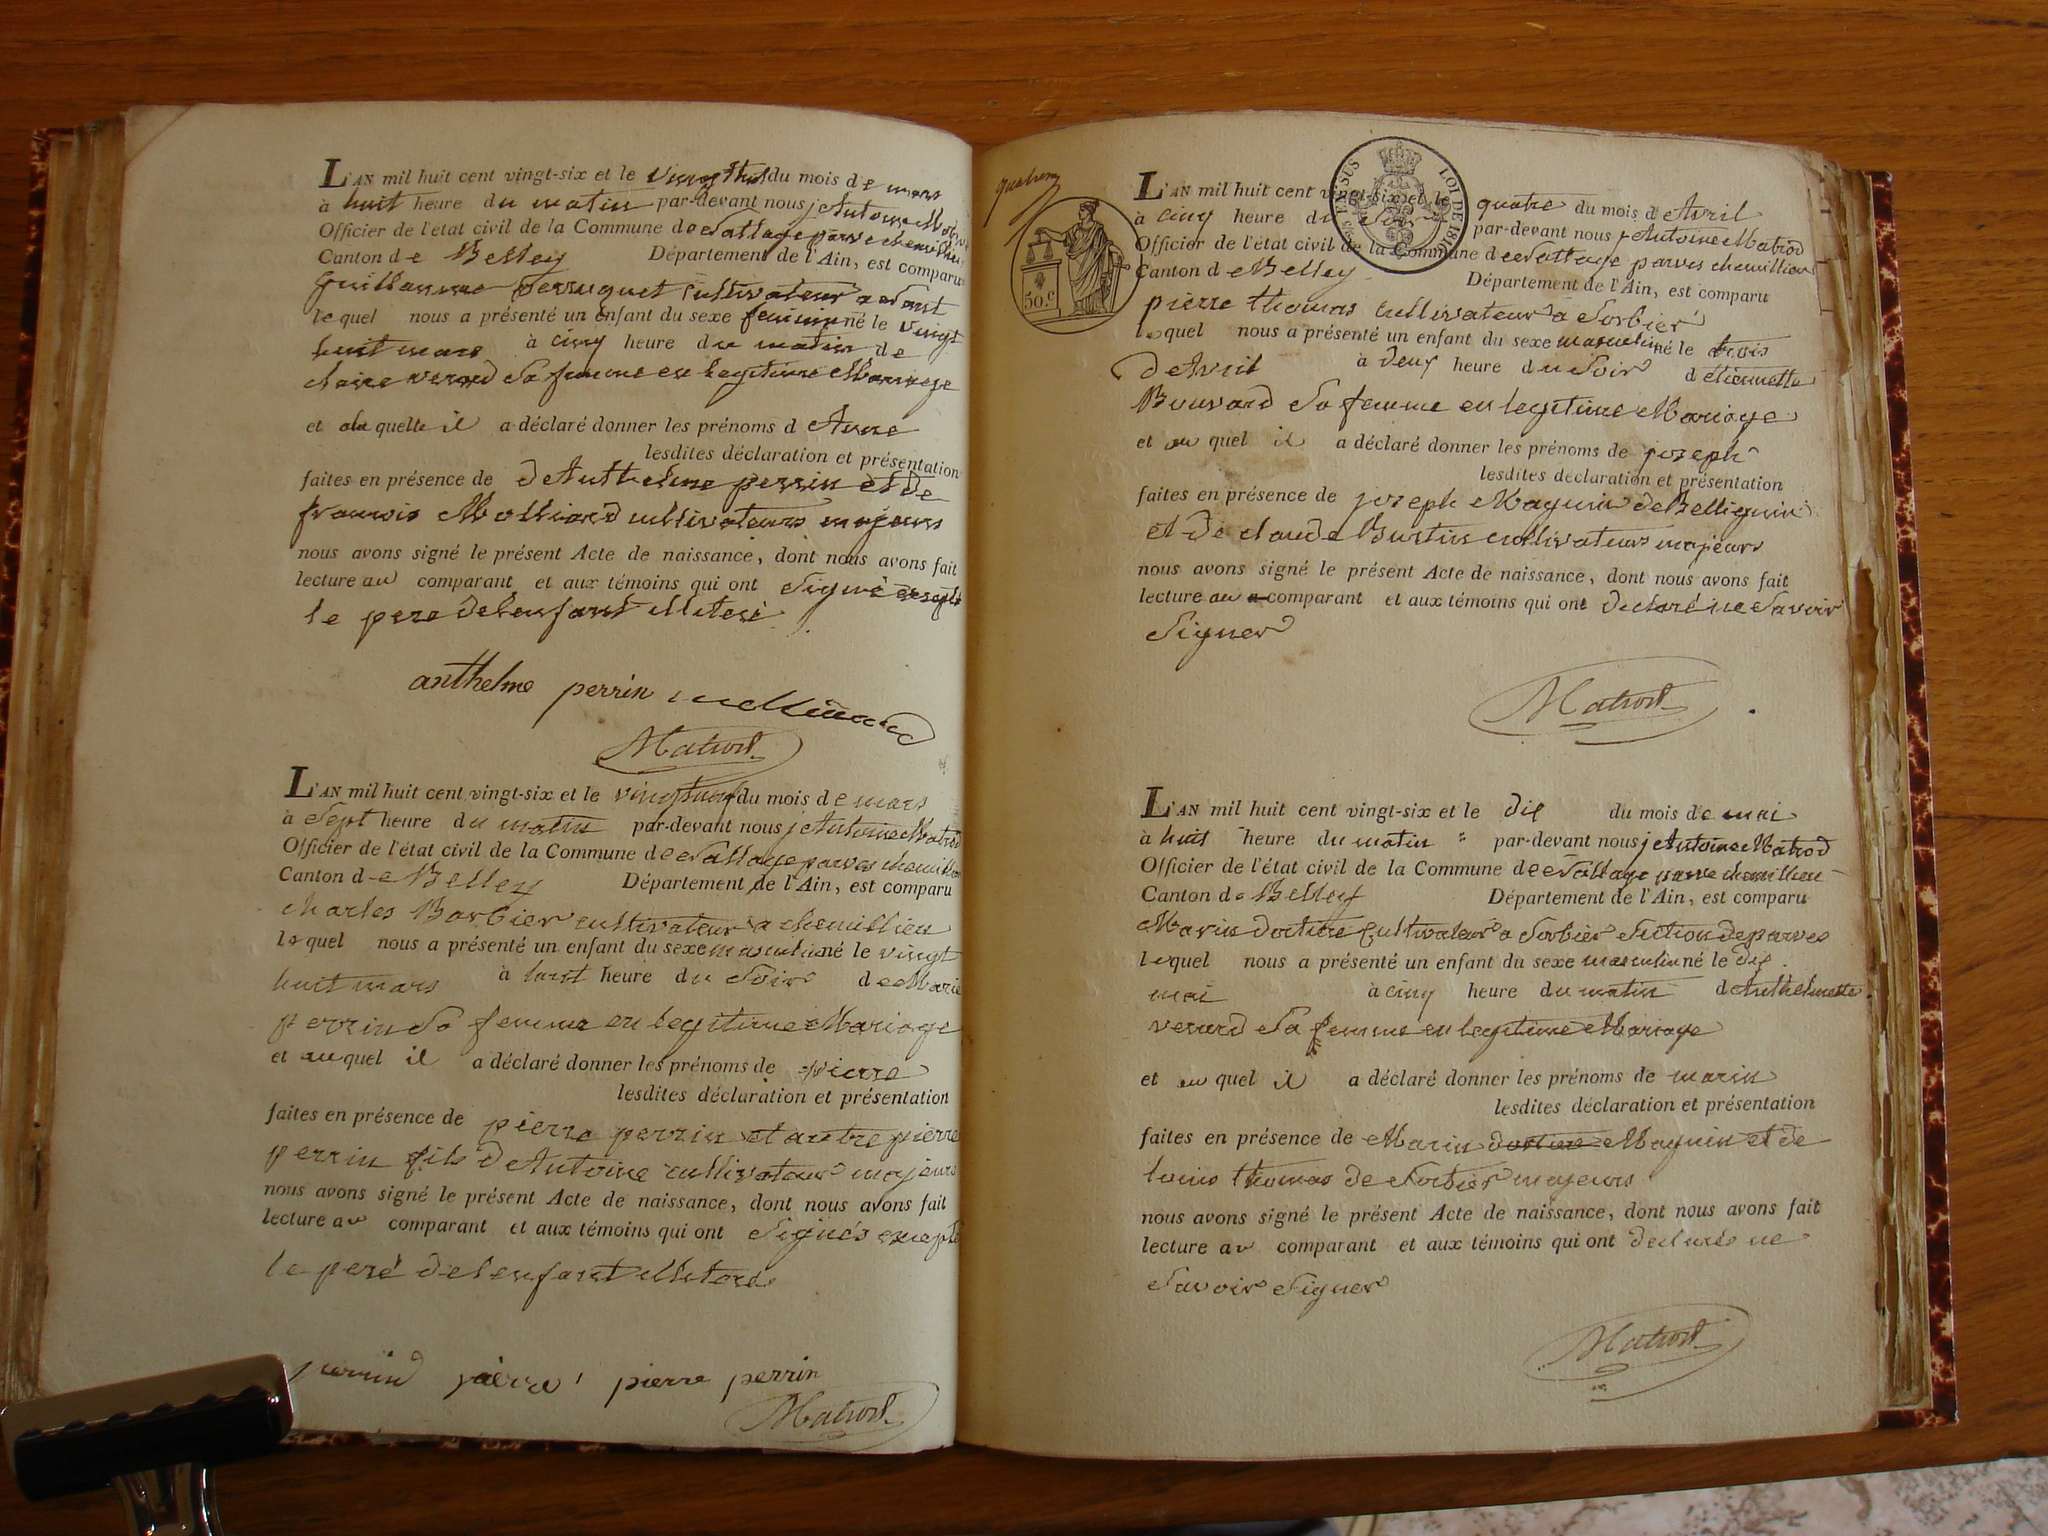 L'AN mil huit cent vingt-six et le du mois de mars
à huit heure du matin par-devant nous j Antoine
Officier de l'état civil de la Commune de
Canton de Belley Département de l'Ain, est comparu
Guillaume cultivateur a
lequel nous a présenté un enfant du sexe feminin né le vingt
huit mars à cinq heure du matin de
claire verard Sa femme en legitime Marriage
et a la quelle il a déclaré donner les prénoms d Anne
lesdites déclaration et présentation
faites en présence de d Anthelme perrin et de
francois cultivateurs majeurs
nous avons signé le présent Acte de naissance, dont nous avons fait
lecture au comparant et aux témoins qui ont Signé excepté
le pere de lenfant
anthelme perrin
Matrod
L'AN mil huit cent vingt-six et le du mois de mars
à Sept heure du matin par-devant nous j Antoine Matrod
Officier de l'état civil de la Commune de
Canton de Belley Département de l'Ain, est comparu
charles Barbier cultivateur a chemillieu
lequel nous a présenté un enfant du sexe masculin né le vingt
huit mars à heure du Soir de Marie
perrin Sa femme en legitime Mariage
et au quel il a déclaré donner les prénoms de pierre
lesdites déclaration et présentation
faites en présence de pierre perrin et autre pierre
perrin fils d Antoine cultivateur majeurs
nous avons signé le présent Acte de naissance, dont nous avons fait
lecture au comparant et aux témoins qui ont Signés excepté
le peré de lenfant
perrin pierre pierre perrin
Matrod
50.c
VISUS EFESUS
LOI DE 1816
L'AN mil huit cent vingt-six et le quatre du mois d Avril
à cinq heure du Soir par-devant nous j Antoine Matrod
Officier de l'état civil de la Commune de parves chemillieu
Canton de Belley Département de l'Ain, est comparu
pierre thomas cultivateur a Sorbier
lequel nous a présenté un enfant du sexe masculin né le trois
d Avril à deux heure du Soir d étiennette
Bouvard Sa femme en legitime Mariage
et au quel il a déclaré donner les prénoms de joseph
lesdites déclaration et présentation
faites en présence de joseph Magnin de Bellignin
et de claude Burtin cultivateurs majeurs
nous avons signé le présent Acte de naissance, dont nous avons fait
lecture au comparant et aux témoins qui ont declaré ne Savoir
Signer
Matrod
L'AN mil huit cent vingt-six et le dix du mois de mai
à huit heure du matin par-devant nous j Antoine Matrod
Officier de l'état civil de la Commune de parve chemillieu
Canton de Belley Département de l'Ain, est comparu
Marin dortine cultivateur a Sorbier Section de parves
lequel nous a présenté un enfant du sexe masculin né le dix
mai à cinq heure du matin d Anthelmette
verard Sa femme en legitime Mariage
et au quel il a déclaré donner les prénoms de marin
lesdites déclaration et présentation
faites en présence de Marin Magnin et de
louis thomas de Sorbier majeurs
nous avons signé le présent Acte de naissance, dont nous avons fait
lecture au comparant et aux témoins qui ont declarés ne
Savoir Signer
Matrod